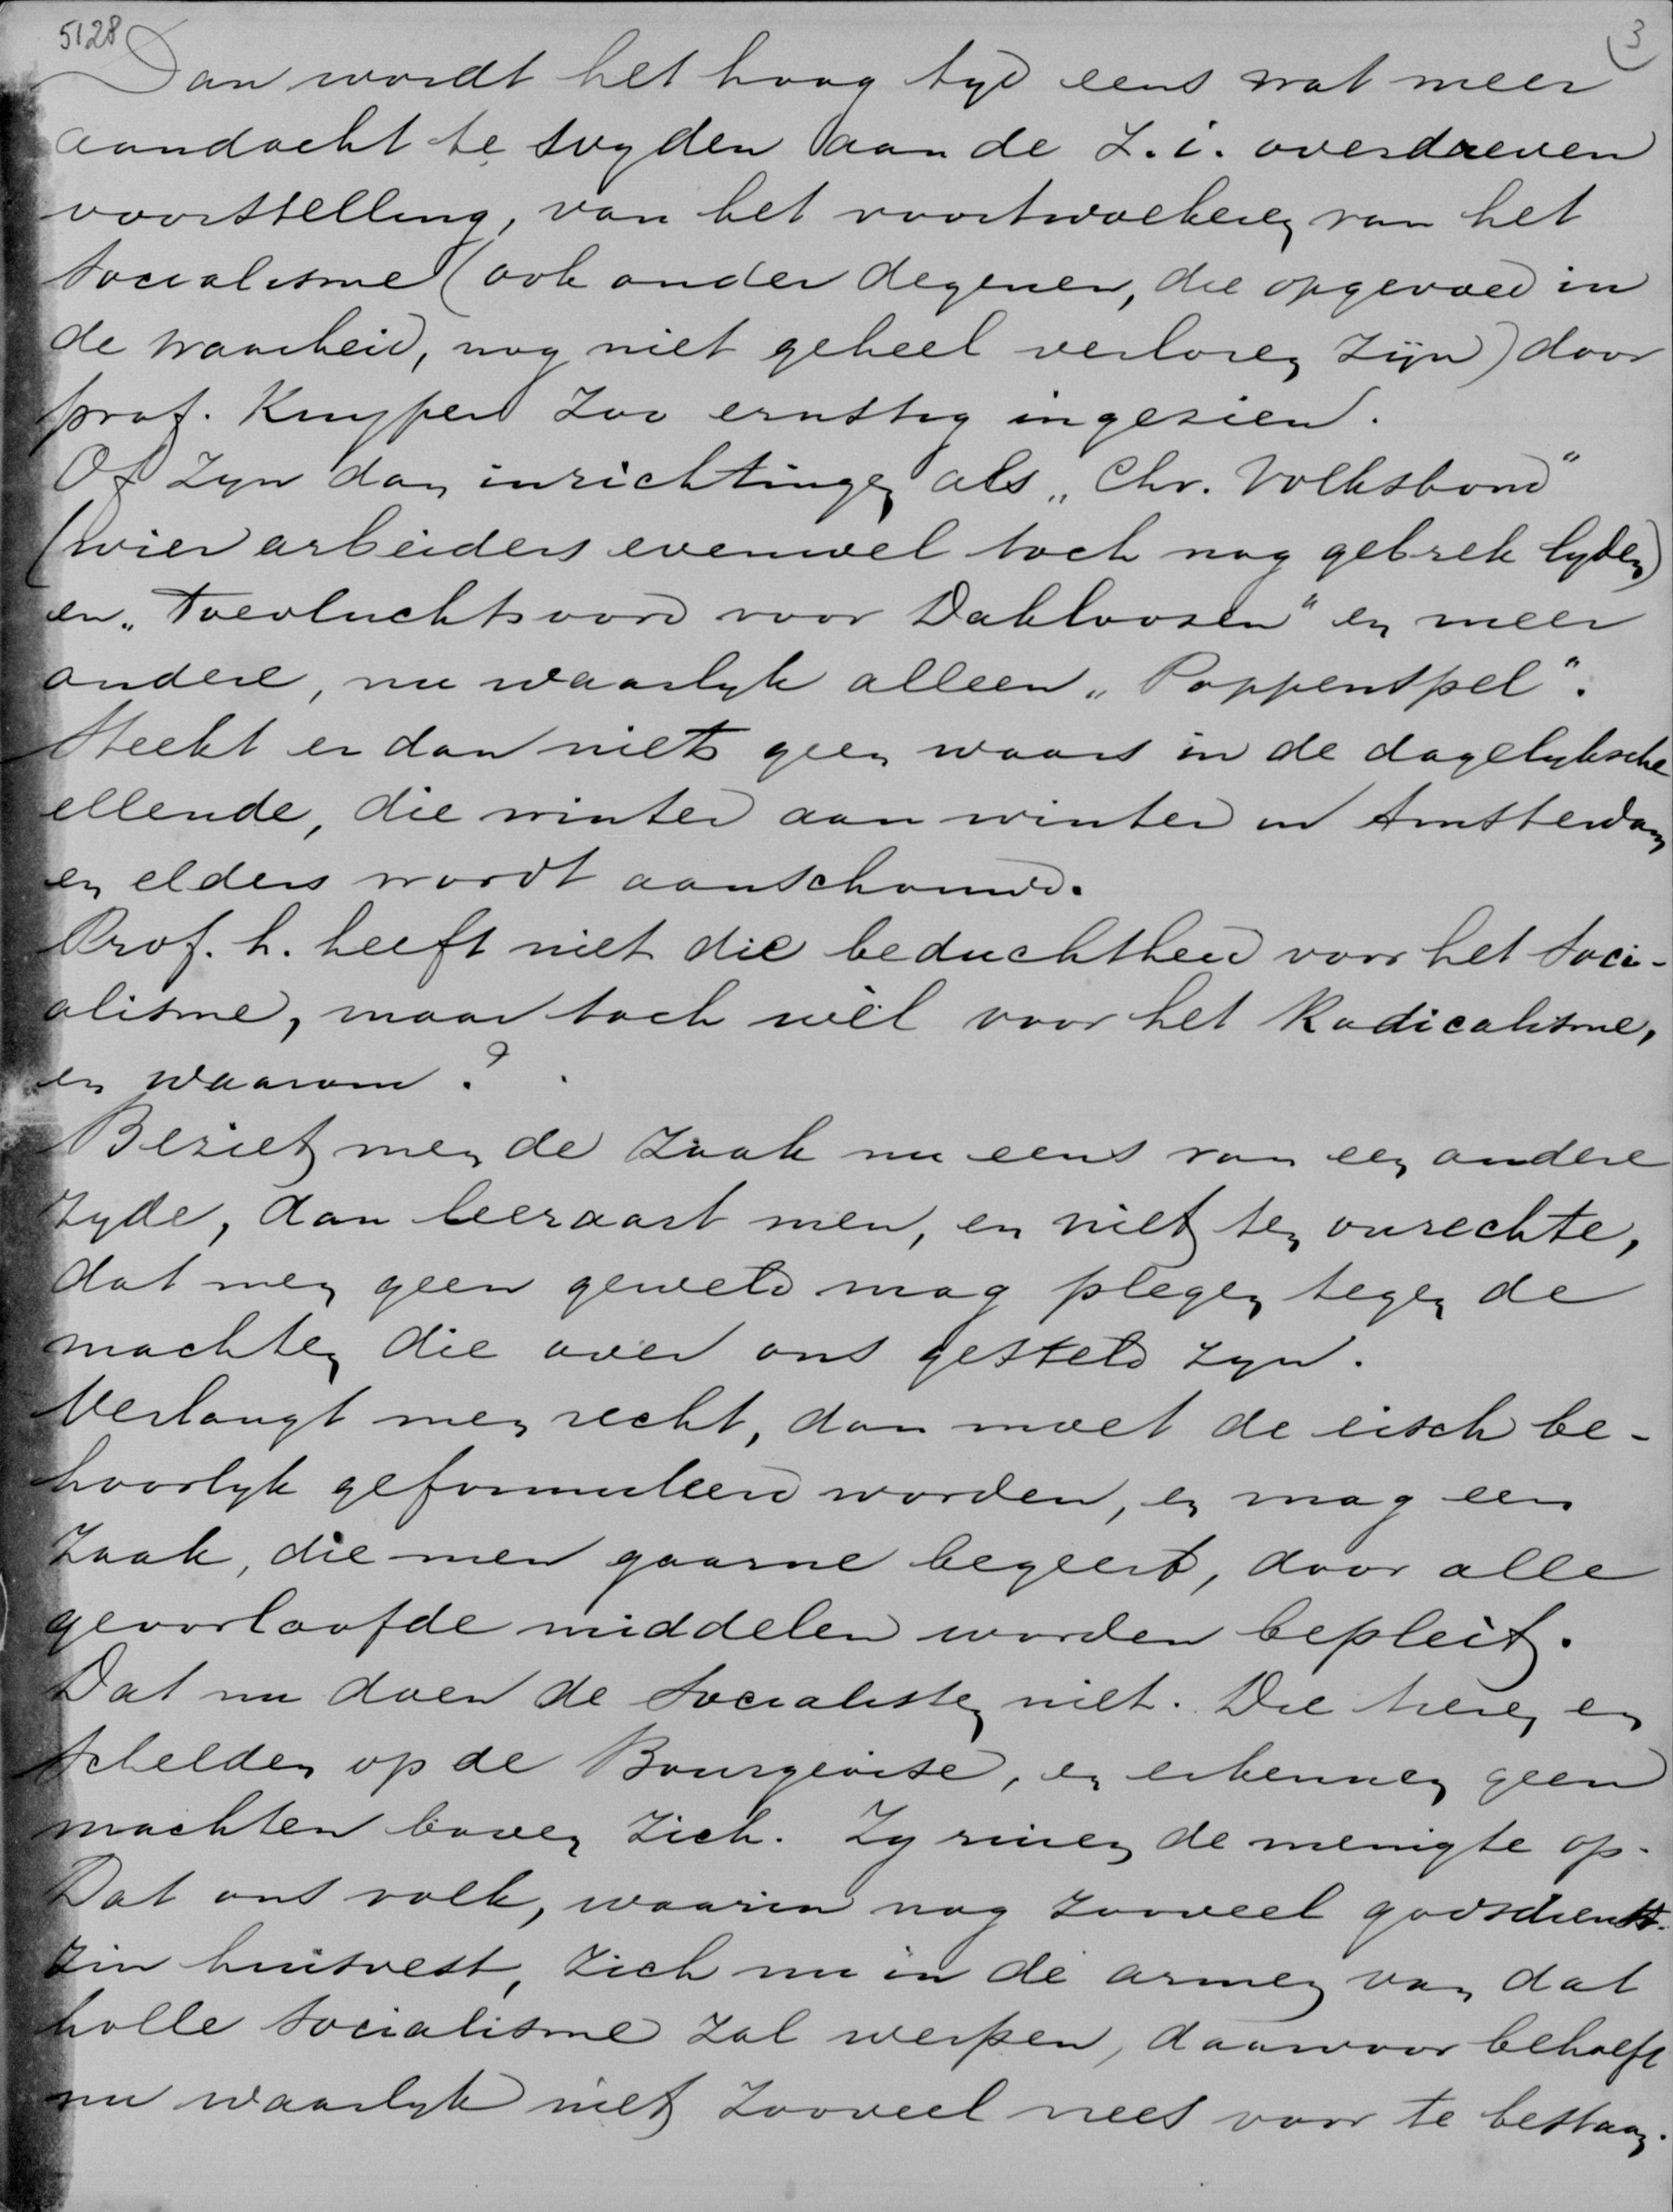 5128
3
Dan wordt het hoog tyd eens wat meer
aandacht te wyden aan de Z.i. overdreven
voorstelling, van het voortwoekeren van het
Socialisme (ook onder degenen, die opgevoed in
de waarheid, nog niet geheel verloren zijn) door
prof. Kuyper zoo ernstig ingezien.
Of zyn dan inrichtingen als „Chr. Volksbond"
(wier arbeiders evenwel toch nog gebrek lyden)
en „Toevluchtsoord voor Dakloozen" en meer
andere, nu waarlyk alleen „Poppenspel".
Steekt er dan niets geen waars in de dagelyksche
ellende, die winter aan winter in Amsterdam
en elders wordt aanschouwd.
Prof. h. heeft niet die beduchtheid voor het Soci-
alisme, maar toch wèl voor het Radicalisme,
en waarom?
Beziet men de Zaak nu eens van een andere
Zyde, dan leeraart men, en niet ten onrechte,
dat men geen geweld mag plegen tegen de
machten die over ons gesteld zyn.
Verlangt men recht, dan moet de eisch be-
hoorlyk geformuleerd worden, en mag een
Zaak, die men gaarne begeert, door alle
geoorloofde middelen worden bepleit.
Dat nu doen de Socialisten niet. Die tieren en
Schelden op de Bourgeoise, en erkennen geen
machten boven Zich. Zy ruien de menigte op.
Dat ons volk, waarin nog zooveel godsdienst-
zin huisvest, Zich nu in de armen van dat
holle Socialisme zal werpen, daarvoor behoeft
nu waarlyk niet zooveel vrees voor te bestaan.